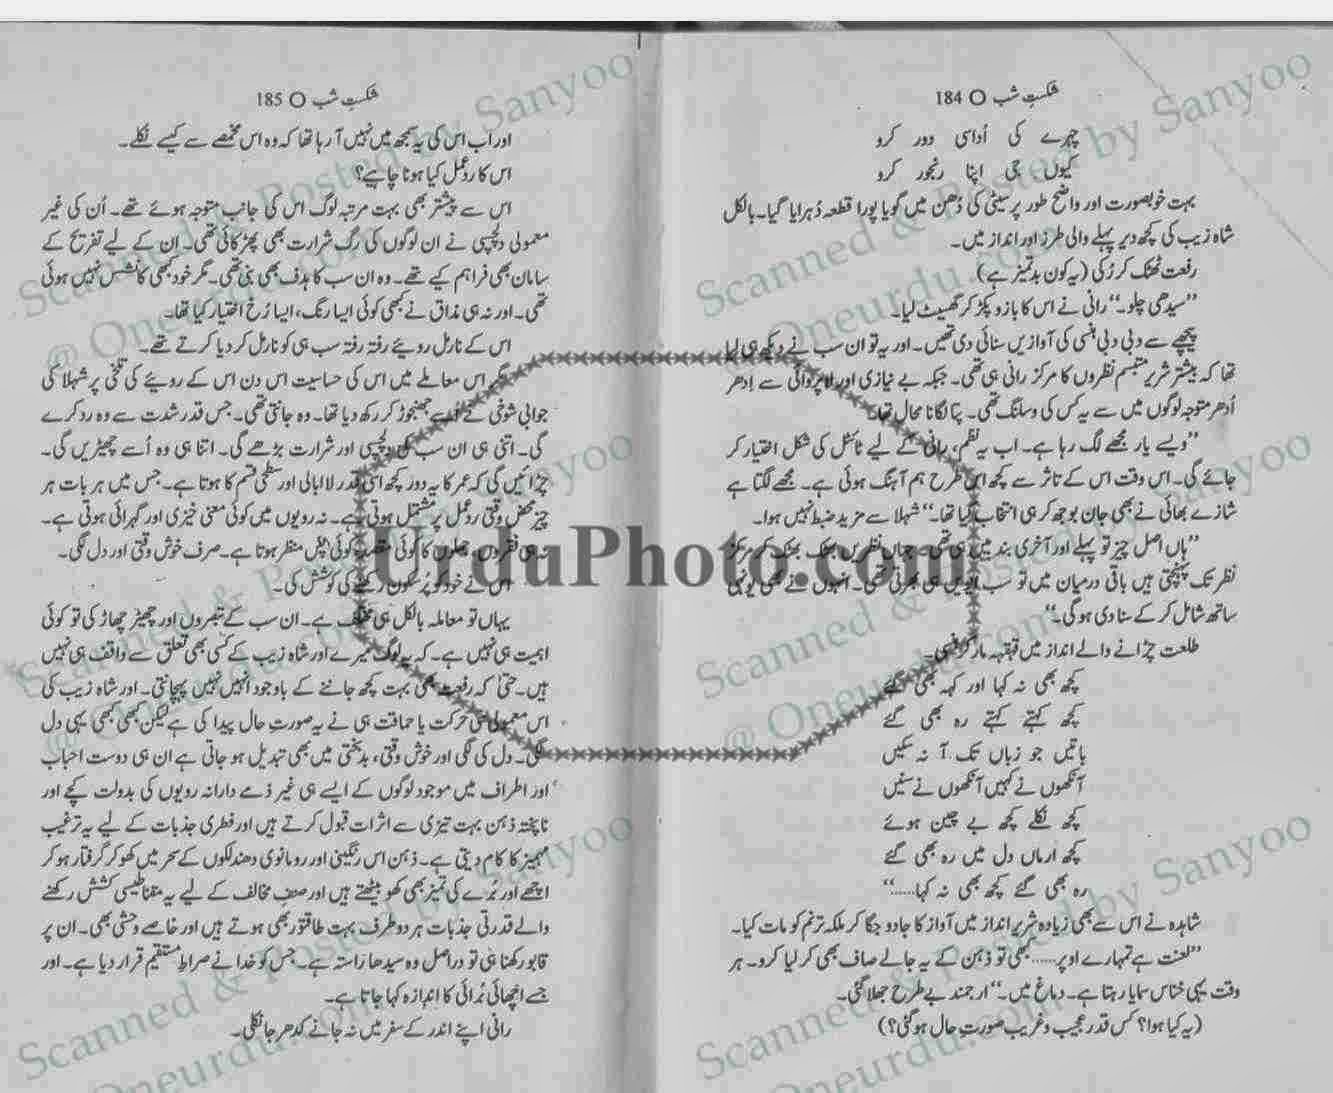 شکستِ شب O 184
چہرے کی اُداسی دور کرو
کیوں جی اپنا رنجور کرو
بہت خوبصورت اور واضح طور پر سیٹی کی دُھن میں گویا پورا قطعہ دُہرایا گیا۔ بالکل
شاہ زیب کی کچھ دیر پہلے والی طرز اور انداز میں۔
رفعت ٹھٹک کر رُکی (یہ کون بدتمیز ہے)
”سیدھی چلو۔“ رانی نے اس کا بازو پکڑ کر گھسیٹ لیا۔
پیچھے سے دبی دبی ہنسی کی آوازیں سنائی دی تھیں۔ اور یہ تو ان سب نے دیکھ ہی لیا
تھا کہ بیشتر شریر متبسم نظروں کا مرکز رانی ہی تھی۔ جبکہ بے نیازی اور لاپروائی سے اِدھر
اُدھر متوجہ لوگوں میں سے یہ کس کی وسلنگ تھی۔ پتا لگانا محال تھا۔
”ویسے یار مجھے لگ رہا ہے۔ اب یہ نظم، رانی کے لیے ٹائٹل کی شکل اختیار کر
جائے گی۔ اس وقت اس کے تاثر سے کچھ اس طرح ہم آہنگ ہوئی ہے۔ مجھے لگتا ہے
شازے بھائی نے بھی جان بوجھ کر ہی انتخاب کیا تھا۔“ شہلا سے مزید ضبط نہیں ہوا۔
”ہاں اصل چیز تو پہلے اور آخری بند میں ہی تھی۔ جہاں نظریں بھٹک بھٹک کر مرکز
نظر تک پہنچتی ہیں باقی درمیان میں تو سب ایویں ہی بھرتی تھی۔ انہوں نے بھی یونہی
ساتھ شامل کر کے سنا دی ہو گی۔“
طلعت چڑانے والے انداز میں قہقہہ مار کر ہنسی۔
کچھ بھی نہ کہا اور کہہ بھی گئے
کچھ کہتے کہتے رہ بھی گئے
باتیں جو زباں تک آ نہ سکیں
آنکھوں نے کہیں آنکھوں نے سنیں
کچھ نکلے کچھ بے چین ہوئے
کچھ ارماں دل میں رہ بھی گئے
رہ بھی گئے کچھ بھی نہ کہا......“
شاہدہ نے اس سے بھی زیادہ شریر انداز میں آواز کا جادو جگا کر ملکہ ترنم کو مات کیا۔
”لعنت ہے تمہارے اوپر...... کبھی تو ذہن کے یہ جالے صاف بھی کر لیا کرو۔ ہر
وقت یہی خناس سمایا رہتا ہے۔ دماغ میں۔“ ارجمند بے طرح جھلا گئی۔
(یہ کیا ہوا؟ کس قدر عجیب و غریب صورتِ حال ہو گئی؟)
شکستِ شب O 185
اور اب اس کی یہ سمجھ میں نہیں آ رہا تھا کہ وہ اس مخمصے سے کیسے نکلے۔
اس کا ردِعمل کیا ہونا چاہیے؟
اس سے پیشتر بھی بہت مرتبہ لوگ اس کی جانب متوجہ ہوئے تھے۔ اُن کی غیر
معمولی دلچسپی نے ان لوگوں کی رگِ شرارت بھی پھڑکائی تھی۔ ان کے لیے تفریح کے
سامان بھی فراہم کیے تھے۔ وہ ان سب کا ہدف بھی بنی تھی۔ مگر خود کبھی کانشس نہیں ہوئی
تھی۔ اور نہ ہی مذاق نے کبھی کوئی ایسا رنگ، ایسا رُخ اختیار کیا تھا۔
اس کے نارمل رویئے رفتہ رفتہ سب ہی کو نارمل کر دیا کرتے تھے۔
مگر اس معاملے میں اس کی حساسیت اس دن اس کے رویئے کی تلخی پر شہلا کی
جوابی شوخی نے اُسے جھنجوڑ کر رکھ دیا تھا۔ وہ جانتی تھی۔ جس قدر شدت سے وہ رد کرے
گی۔ اتنی ہی ان سب کی دلچسپی اور شرارت بڑھے گی۔ اتنا ہی وہ اُسے چھیڑیں گی۔
چڑائیں گی کہ عمر کا یہ دور کچھ اسی قدر لاابالی اور سطحی قسم کا ہوتا ہے۔ جس میں ہر بات ہر
چیز محض وقتی ردِعمل پر مشتمل ہوتی ہے۔ نہ رویوں میں کوئی معنی خیزی اور گہرائی ہوتی ہے۔
نہ ہی فقروں، جملوں کا کوئی مقصد، کوئی پس منظر ہوتا ہے۔ صرف خوش وقتی اور دل لگی۔
اس نے خود کو پُرسکون رکھنے کی کوشش کی۔
یہاں تو معاملہ بالکل ہی مختلف ہے۔ ان سب کے تبصروں اور چھیڑ چھاڑ کی تو کوئی
اہمیت ہی نہیں ہے۔ کہ یہ لوگ میرے اور شاہ زیب کے کسی بھی تعلق سے واقف ہی نہیں
ہیں۔ حتیٰ کہ رفعت بھی بہت کچھ جاننے کے باوجود انہیں نہیں پہچانتی۔ اور شاہ زیب کی
اس معمولی سی حرکت یا حماقت ہی نے یہ صورتِ حال پیدا کی ہے لیکن کبھی کبھی یہی دل
لگی۔ دل کی لگی اور خوش وقتی، بدبختی میں بھی تبدیل ہو جاتی ہے ان ہی دوست احباب
اور اطراف میں موجود لوگوں کے ایسے ہی غیر ذمے دارانہ رویوں کی بدولت کچے اور
ناپختہ ذہن بہت تیزی سے اثرات قبول کرتے ہیں اور فطری جذبات کے لیے یہ ترغیب
مہمیز کا کام دیتی ہے۔ ذہن اس رنگینی اور رومانوی دھندلکوں کے سحر میں کھو کر گرفتار ہو کر
اچھے اور بُرے کی تمیز بھی کھو بیٹھتے ہیں اور صنفِ مخالف کے لیے یہ مقناطیسی کشش رکھنے
والے قدرتی جذبات ہر دو طرف بہت طاقتور بھی ہوتے ہیں اور خاصے وحشی بھی۔ ان پر
قابو رکھنا ہی تو دراصل وہ سیدھا راستہ ہے۔ جس کو خدا نے صراطِ مستقیم قرار دیا ہے۔ اور
جسے اچھائی بُرائی کا اندازہ کہا جاتا ہے۔
رانی اپنے اندر کے سفر میں نہ جانے کدھر جا نکلی۔
UrduPhoto.com
Scanned & Posted by Sanyoo
@ Oneurdu.com
Scanned & Posted by Sanyoo
@ Oneurdu.com
Scanned & Posted by Sanyoo
@ Oneurdu.com
Scanned & Posted by Sanyoo
@ Oneurdu.com
Scanned & Posted by Sanyoo
Oneurdu.com
Scanned & Posted by Sanyoo
Oneurdu.com